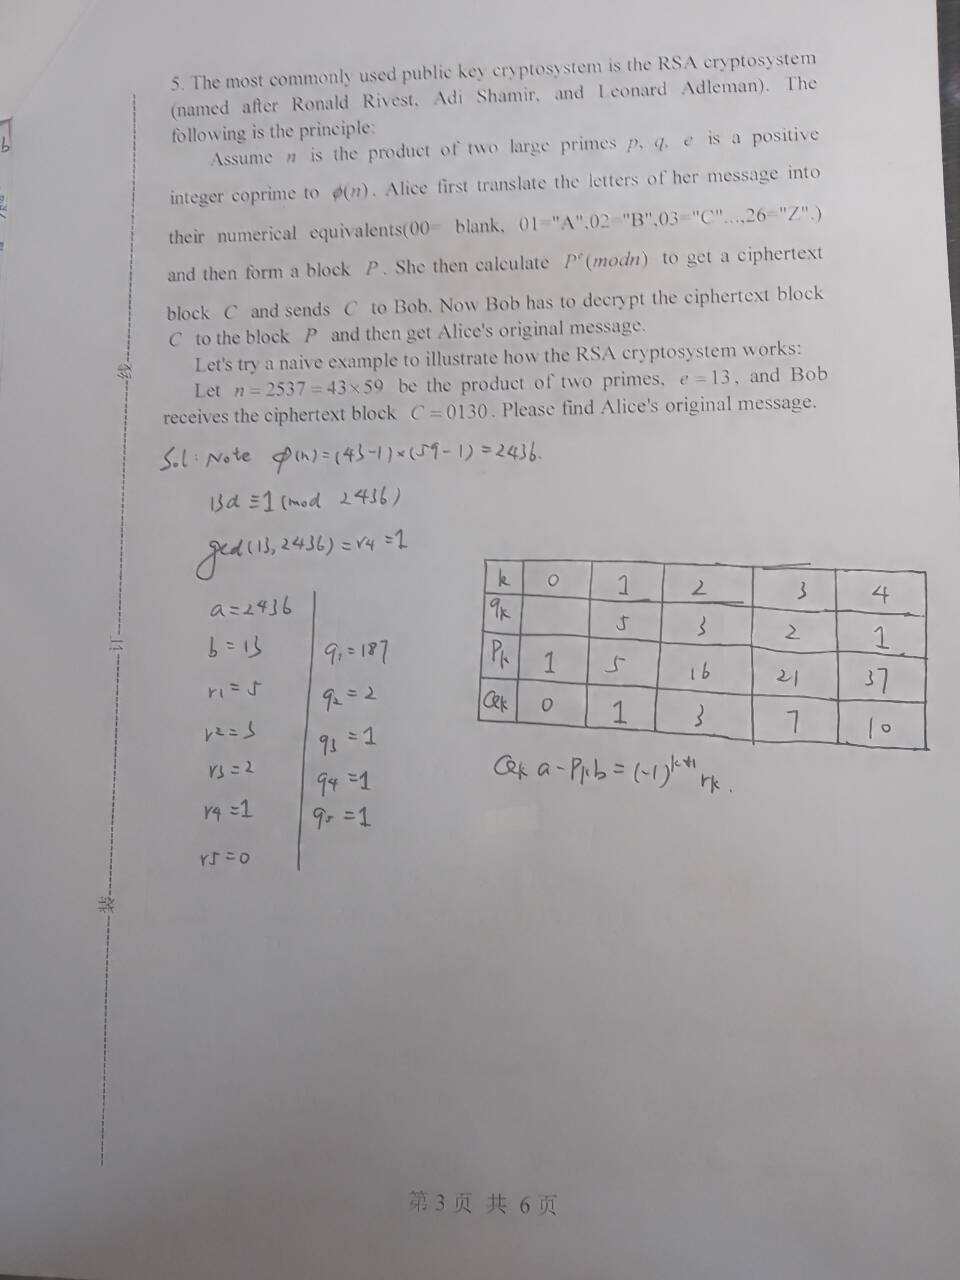 5. The most commonly used public key cryptosystem is the RSA cryptosystem
(named after Ronald Rivest, Adi Shamir, and Leonard Adleman). The
following is the principle:
Assume n is the product of two large primes p, q, e is a positive
integer coprime to ϕ(n). Alice first translate the letters of her message into
their numerical equivalents(00= blank, 01="A",02="B",03="C"...,26="Z".)
and then form a block P. She then calculate P^e(modn) to get a ciphertext
block C and sends C to Bob. Now Bob has to decrypt the ciphertext block
C to the block P and then get Alice's original message.
Let's try a naive example to illustrate how the RSA cryptosystem works:
Let n=2537=43×59 be the product of two primes, e=13, and Bob
receives the ciphertext block C=0130. Please find Alice's original message.
Sol: Note ϕ(n)=(43-1)×(59-1)=2436.
13d≡1(mod 2436)
gcd(13,2436)=r4=1
a=2436
b=13 q1=187
r1=5 q2=2
r2=3 q3=1
r3=2 q4=1
r4=1 q5=1
r5=0
k 0 1 2 3 4
qk 5 3 2 1
Pk 1 5 16 21 37
Qk 0 1 3 7 10
Qk a-Pk b=(-1)^k+1 rk.
线
订
装
第 3 页 共 6 页
b